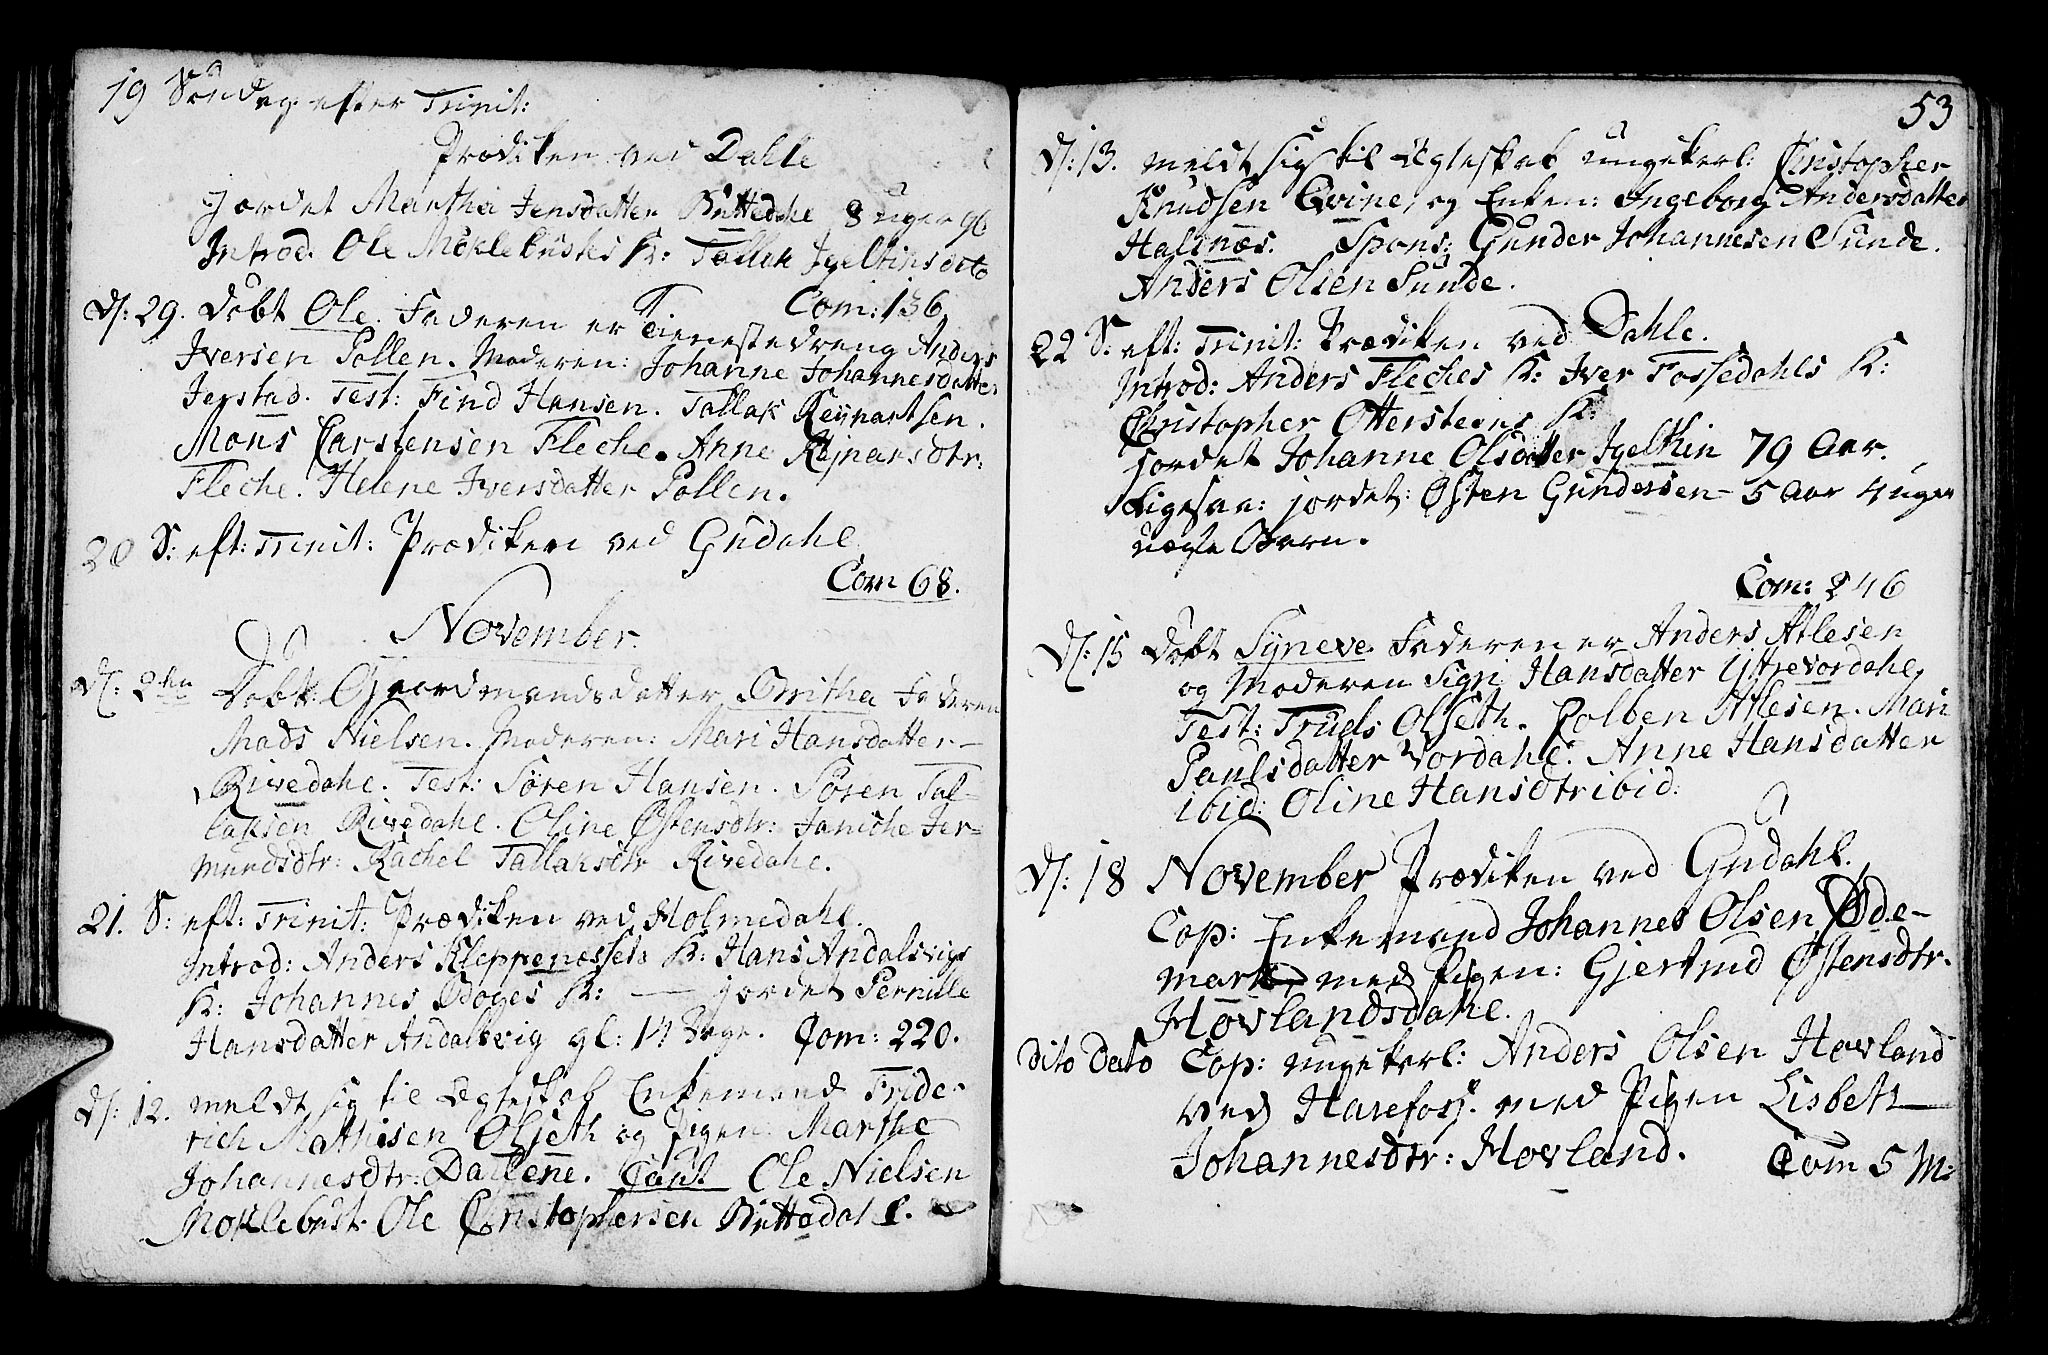 19 Søndag efter Trinit:
Prædiken ved Dahle
Jordet Martha Jensdatter Byttedahl 8 uger g̃l
Introd. Ole Möklebustes K: Tallak Igeltins dito
Com: 136
D: 29. Döbt Ole. Faderen er Tienestedreng Anders
Iversen Pollen. Moderen: Johanne Johannesdatter
Jerstad. Test: Find Hansen. Tallak Reynartsen.
Mons Carstensen Fleche. Anne Rejnarsdtr:
Fleche. Helene Iversdatter Pollen.
20 S: eft: Trinit: Prædiken ved Gudahl
Com 68.
November.
D: 2den Döbt Gaardmandsdatter Britha Faderen
Mads Nielsen. Moderen: Mari Hansdatter
Rivedahl. Test: Sören Hansen. Sören Tal-
laksen Rivedahl. Oline Østensdtr: Janiche Jer-
mundsdtr: Rachel Tallaksdtr Rivedahl.
21. S: eft: Trinit: Prædiken ved Holmedahl.
Introd: Anders Kleppenæssets K: Hans Andalsvigs
K: Johannes Boges K: — jordet Pernille
Hansdatter Andalsvig gl: 14 Dage. Com: 220.
D: 12. meldt sig til Egteskab Enkemand Fride-
rich Mathisen Olseth og Pigen Marthe
Johannesdtr: Dallene. Caut Ole Nielsen
Möklebust. Ole Christophersen Byttedahl.
53
D: 13. meldt sig til Egteskab ungekerl: Christopher
Knudsen Qvine, og Enken: Ingeborg Andersdatter
Halsnæs. Spons: Gunder Johannesen Sunde.
Anders Olsen Sunde.
22 S: eft: Trinit: Prædiken ved Dahle.
Introd: Anders Fleches K: Iver Fossedahls K:
Christopher Ottersteens K:
jordet Johanne Olsdatter Igelthin 79 Aar.
Ligesaa: jordet: Østen Gundersen 5 Aar 4 uger
uægte Barn.
Com: 246
D: 15 Döbt Syneve. Faderen er Anders Atlesen
og Moderen Sigri Hansdatter Yttrevordahl
Test: Truls Olseth. Colben Atlesen. Mari
Paulsdatter Vordahl. Anne Hansdatter
ibid: Oline Hansdtr ibid:
D: 18 November Prædiken ved Gudahl.
Cop: Enkemand Johannes Olsen Øde-
mark, med Pigen: Gjertrud Østensdtr.
Hovlandsdahl.
Dito Dato Cop: ungekerl: Anders Olsen Hovland
ved Harefoss. med Pigen Lisbeth
Johannesdtr: Hovland.
Com 5 M: